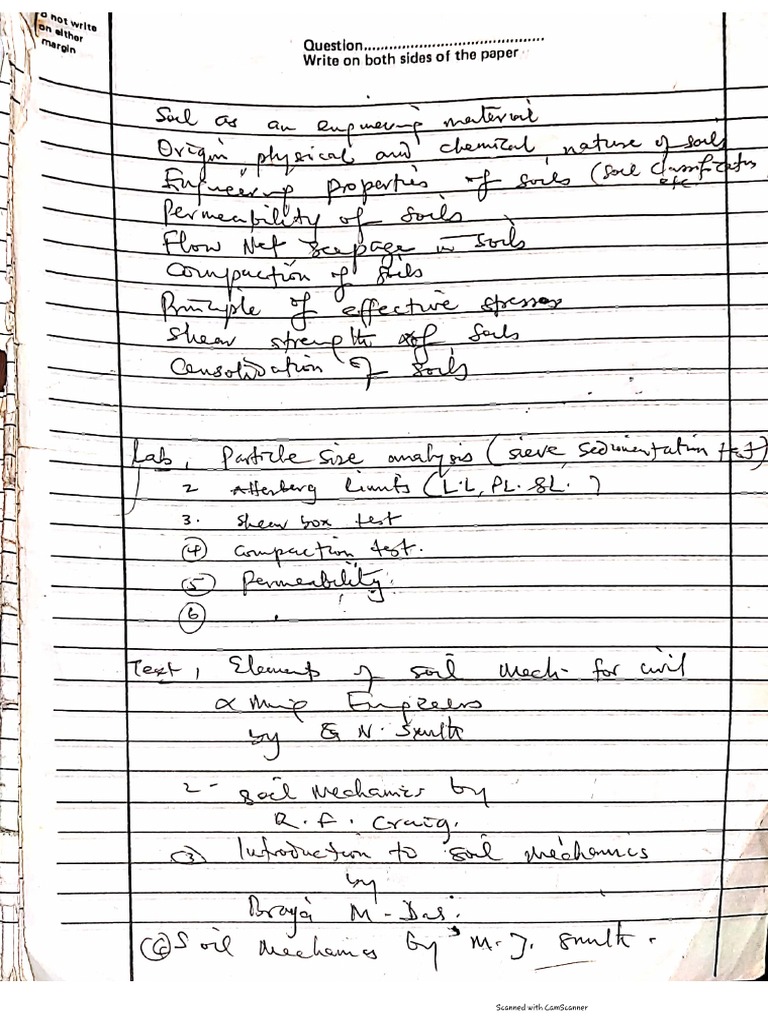 Do not write
on either
margin
Question
Write on both sides of the paper
Soil as an engineering material
Origin, physical and chemical nature of soils
Engineering properties of soils (soil classification etc
Permeability of soils
Flow Net seepage in soils
Compaction of soils
Principle of effective stresses
Shear strength of soils
Consolidation of soils
Lab, Particle size analysis (sieve, sedimentation test)
2 Atterberg limits (L.L, PL. SL. )
3. Shear box test
④ compaction test.
⑤ Permeability.
⑥
Text, Elements of soil mech- for civil
& Mining Engineers
by G N. Smith
2- Soil Mechanics by
R. F. Craig.
(3) Introduction to soil mechanics
by
Braja M- Das.
Soil Mechanics by M. J. Smith.
Scanned with CamScanner